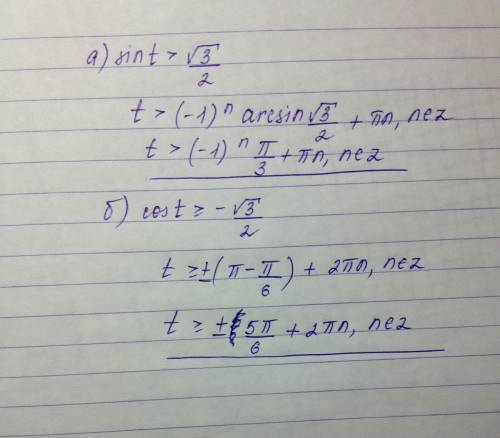 а) sin t > √3/2
t > (-1)ⁿ arcsin √3/2 + πn, n∈z
t > (-1)ⁿ π/3 + πn, n∈z
б) cos t ≥ - √3/2
t ≥ ± (π - π/6) + 2πn, n∈z
t ≥ ± 5π/6 + 2πn, n∈z